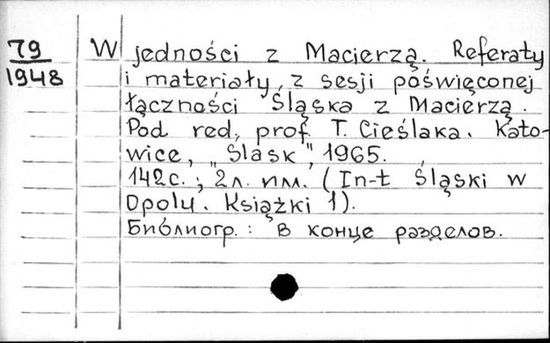 79
1948
W jedności z Macierzą. Referaty
i materiały z sesji poświęconej
łączności Śląska z Macierzą.
Pod red. prof. T. Cieślaka. Kato-
wice, "Śląsk", 1965.
142с.; 2л. илл. (In-t Śląski w
Opolu. Książki 1).
Библиогр.: в конце разделов.